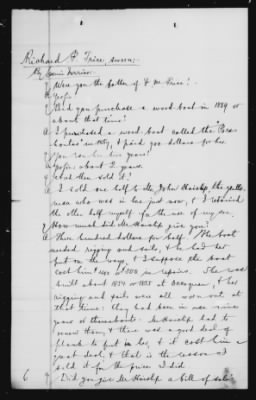 Richard P. Trice, sworn:
By
Q Were you the father of F. M. Trice?
A Yes sir.
Q Did you purchase a wood boat in 1889 or
about that time?
A I purchased a wood boat called the
in 1889, & paid 900 dollars for her.
Q You ran her two years?
A Yes sir, about 2 years.
Q And then sold it?
A I sold one half to Mr. John Haislip, the gentle-
man who was in here just now, & I retained
the other half myself for the use of my son.
Q How much did Mr. Haislip give you?
A Three hundred dollars for half. The boat
needed rigging and sails, & he had her
put on the ways, & I suppose the boat
cost him in repairs. She was
built about 1854 or 1855 at Occoquan, & her
rigging and sails were all worn out at
that time: they had been in use nine
years or thereabouts. Mr. Haislip had to
renew them, & there was a good deal of
plank to put in her, & it cost him a
great deal & that is the reason I
sold it for the price I did.
Q Did you give Mr Haislip a bill of sale
6